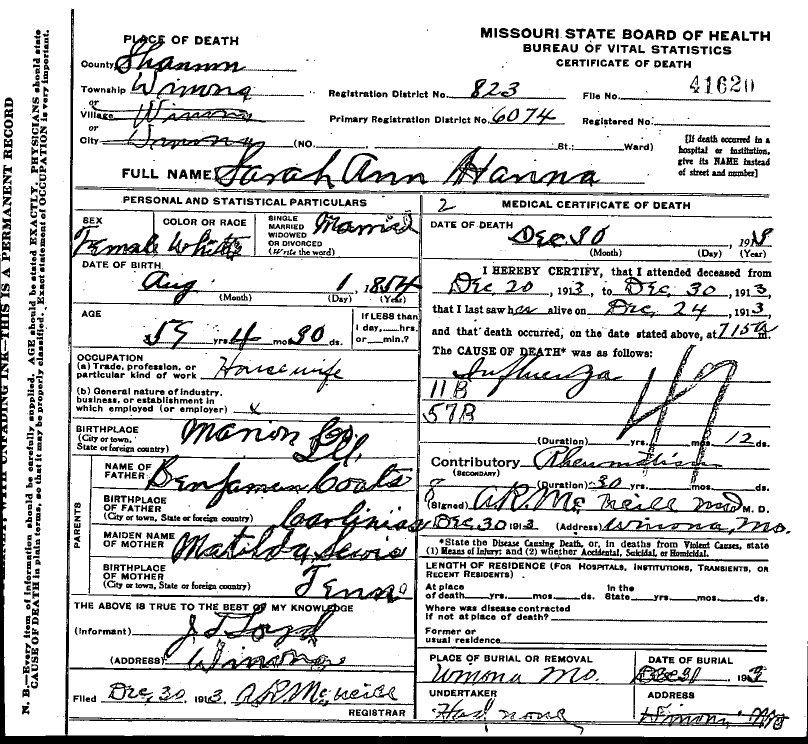 MISSOURI STATE BOARD OF HEALTH
BUREAU OF VITAL STATISTICS
CERTIFICATE OF DEATH
PLACE OF DEATH
County Shannon
Township Winona
or
Village Winona
or
City Winona (NO. St.; Ward)
Registration District No. 823 File No. 41620
Primary Registration District No. 6074 Registered No.
[If death occurred in a
hospital or institution,
give its NAME instead
of street and number]
FULL NAME Sarah Ann Hanna
PERSONAL AND STATISTICAL PARTICULARS
SEX
Female
COLOR OR RACE
White
SINGLE
MARRIED
WIDOWED
OR DIVORCED
(Write the word)
Married
DATE OF BIRTH
Aug 1, 1854
(Month) (Day) (Year)
AGE
59 yrs 4 mos 30 ds.
If LESS than
1 day, hrs.
or min.?
OCCUPATION
(a) Trade, profession, or
particular kind of work Housewife
(b) General nature of industry,
business, or establishment in
which employed (or employer) x
BIRTHPLACE
(City or town,
State or foreign country)
Marion Ill.
PARENTS
NAME OF
FATHER Benjamen Coats
BIRTHPLACE
OF FATHER
(City or town, State or foreign country)
Carlinias
MAIDEN NAME
OF MOTHER Matilda Lewis
BIRTHPLACE
OF MOTHER
(City or town, State or foreign country)
Tenn
THE ABOVE IS TRUE TO THE BEST OF MY KNOWLEDGE
(Informant) J T
(ADDRESS) Winona
Filed Dec, 30, 1913. A.R. McNeill
REGISTRAR
2 MEDICAL CERTIFICATE OF DEATH
DATE OF DEATH
Dec 30, 1913
(Month) (Day) (Year)
I HEREBY CERTIFY, that I attended deceased from
Dec 20, 1913, to Dec, 30, 1913,
that I last saw her alive on Dec, 24, 1913,
and that death occurred, on the date stated above, at 715a m.
The CAUSE OF DEATH* was as follows:
Influenza
11B
57B
47
(Duration) yrs. mos. 12 ds.
Contributory Rheumatism
(SECONDARY)
(Duration) 30
(Signed) A.R. McNeill M. D.
Dec 30 1913 (Address) Winona, Mo.
*State the Disease Causing Death, or, in deaths from Violent Causes, state
(1) Means of Injury; and (2) whether Accidental, Suicidal, or Homicidal.
LENGTH OF RESIDENCE (FOR HOSPITALS, INSTITUTIONS, TRANSIENTS, OR
RECENT RESIDENTS)
At place
of death yrs. mos. ds.
In the
State yrs. mos. ds.
Where was disease contracted
if not at place of death?
Former or
usual residence
PLACE OF BURIAL OR REMOVAL
Winona Mo.
DATE OF BURIAL
Dec 31, 1913
UNDERTAKER
Had none
ADDRESS
Winona Mo
WITH UNFADING INK—THIS IS A PERMANENT RECORD
N. B.—Every item of information should be carefully supplied. AGE should be stated EXACTLY. PHYSICIANS should state
CAUSE OF DEATH in plain terms, so that it may be properly classified. Exact statement of OCCUPATION is very important.